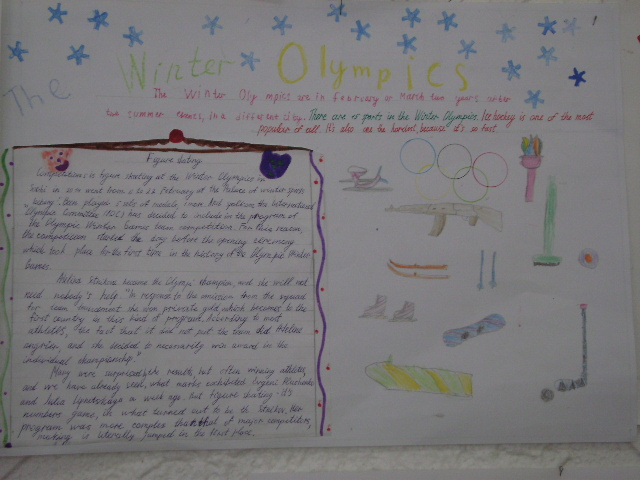 1
The Winter Olympics
The Winter Olympics are in February or March two years after
the summer events, in a different city. There are 15 sports in the Winter Olympics. Ice hockey is one of the most
popular of all. It's also one the hardest, because it's so fast.
Figure skating
Competitions in figure skating at the Winter Olympics in
Sochi in 2014 went from 6 to 22 February at the Palace of winter sports
Been played 5 sets of medals
Olympic Committee (IOC) has decided to include in the program of
the Olympic Winter Games team competition. For this reason,
the competition started the day before the opening ceremony
which took place for the first time in the history of the Olympic Winter
Games.
Adelina Sotnikova became the Olympic champion, and she will not
need nobody's help. In response to the omission from the squad
for team
first country in this kind of program. According to most
athletes, "the fact that it did not put the team did Adeline
angrier and she decided to necessarily win award in the
individual championship."
Many were surprised the results, but often winning athletes,
and we have already seen, what marks exhibited Evgeni Plushenko
and Julia Lipnitskaya a week ago. But figure skating - it's
numbers game, in what turned out to be th. Her
program was more complex that of major competitors,
making is literally jumped in the first place.